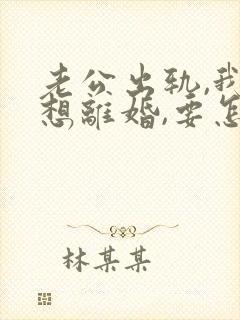 老公出轨,我
想離婚,要怎
林某某